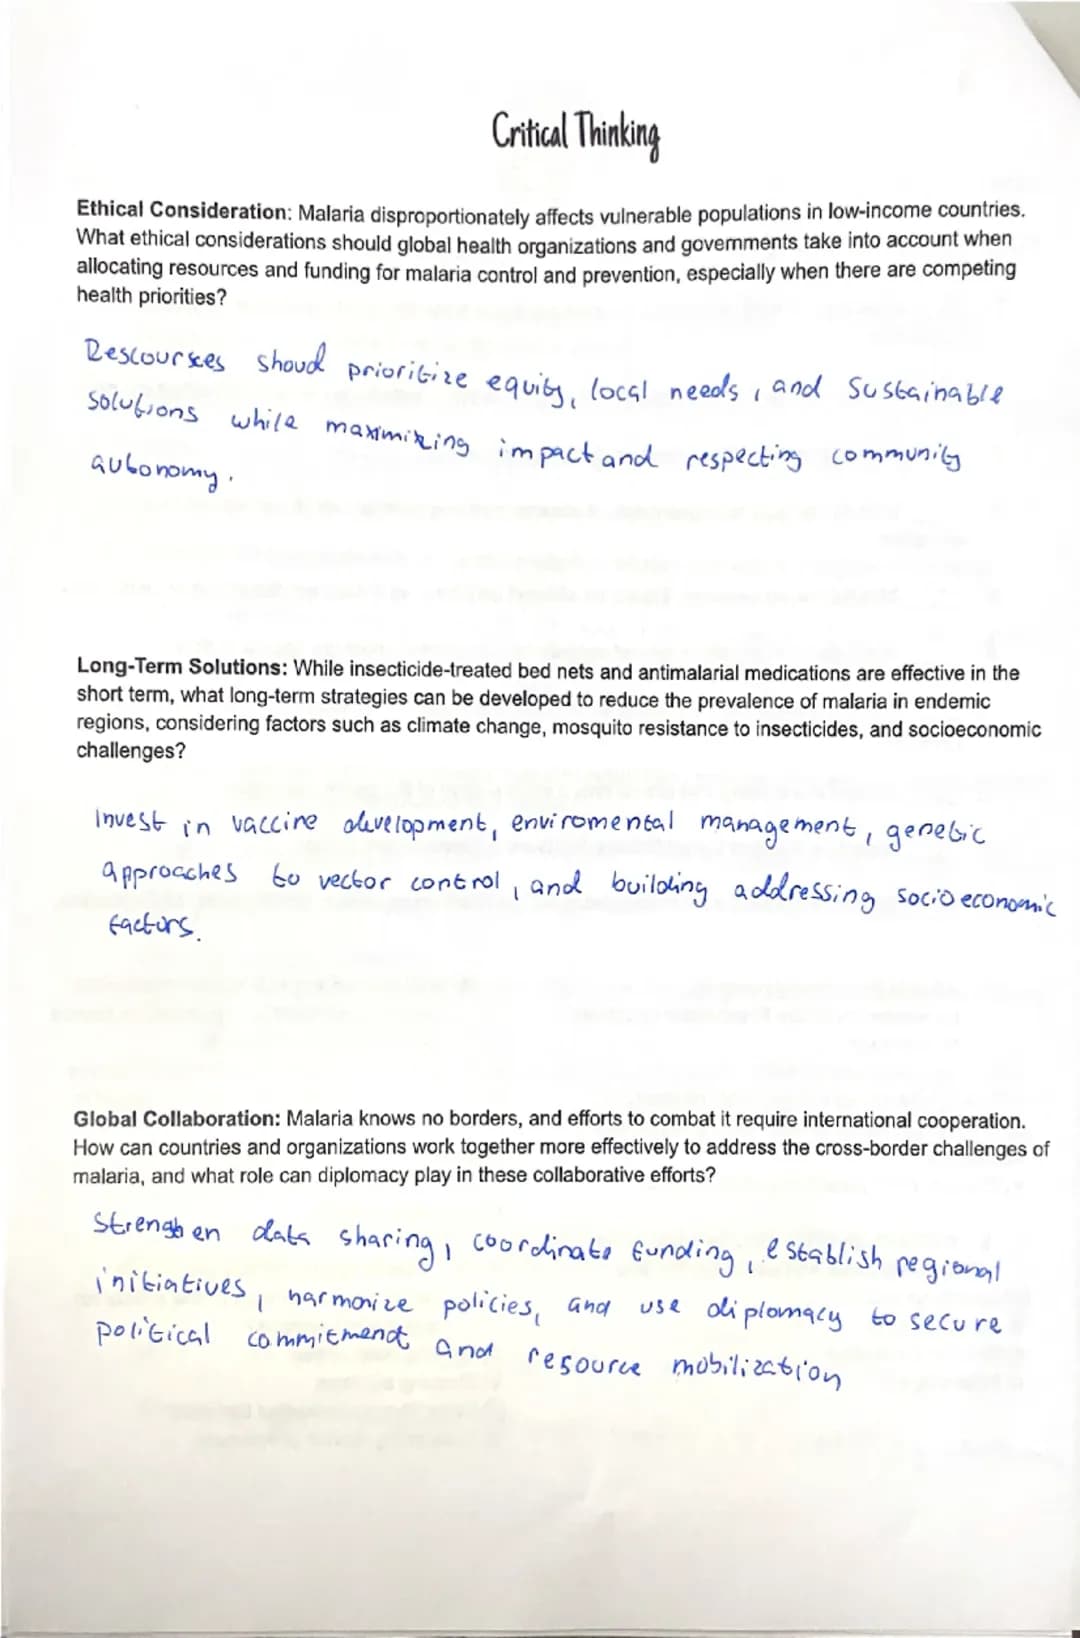 Critical Thinking
Ethical Consideration: Malaria disproportionately affects vulnerable populations in low-income countries.
What ethical considerations should global health organizations and governments take into account when
allocating resources and funding for malaria control and prevention, especially when there are competing
health priorities?
Rescourses shoud prioritize equity, local needs, and sustainable
solutions while maximizing impact and respecting community
autonomy.
Long-Term Solutions: While insecticide-treated bed nets and antimalarial medications are effective in the
short term, what long-term strategies can be developed to reduce the prevalence of malaria in endemic
regions, considering factors such as climate change, mosquito resistance to insecticides, and socioeconomic
challenges?
Invest in vaccine development, enviromental management, genetic
approaches to vector control, and building addressing socioeconomic
factors.
Global Collaboration: Malaria knows no borders, and efforts to combat it require international cooperation.
How can countries and organizations work together more effectively to address the cross-border challenges of
malaria, and what role can diplomacy play in these collaborative efforts?
Strengthen data sharing, coordinate funding, establish regional
initiatives, harmonize policies, and use diplomacy to secure
political commitment and resource mobilization